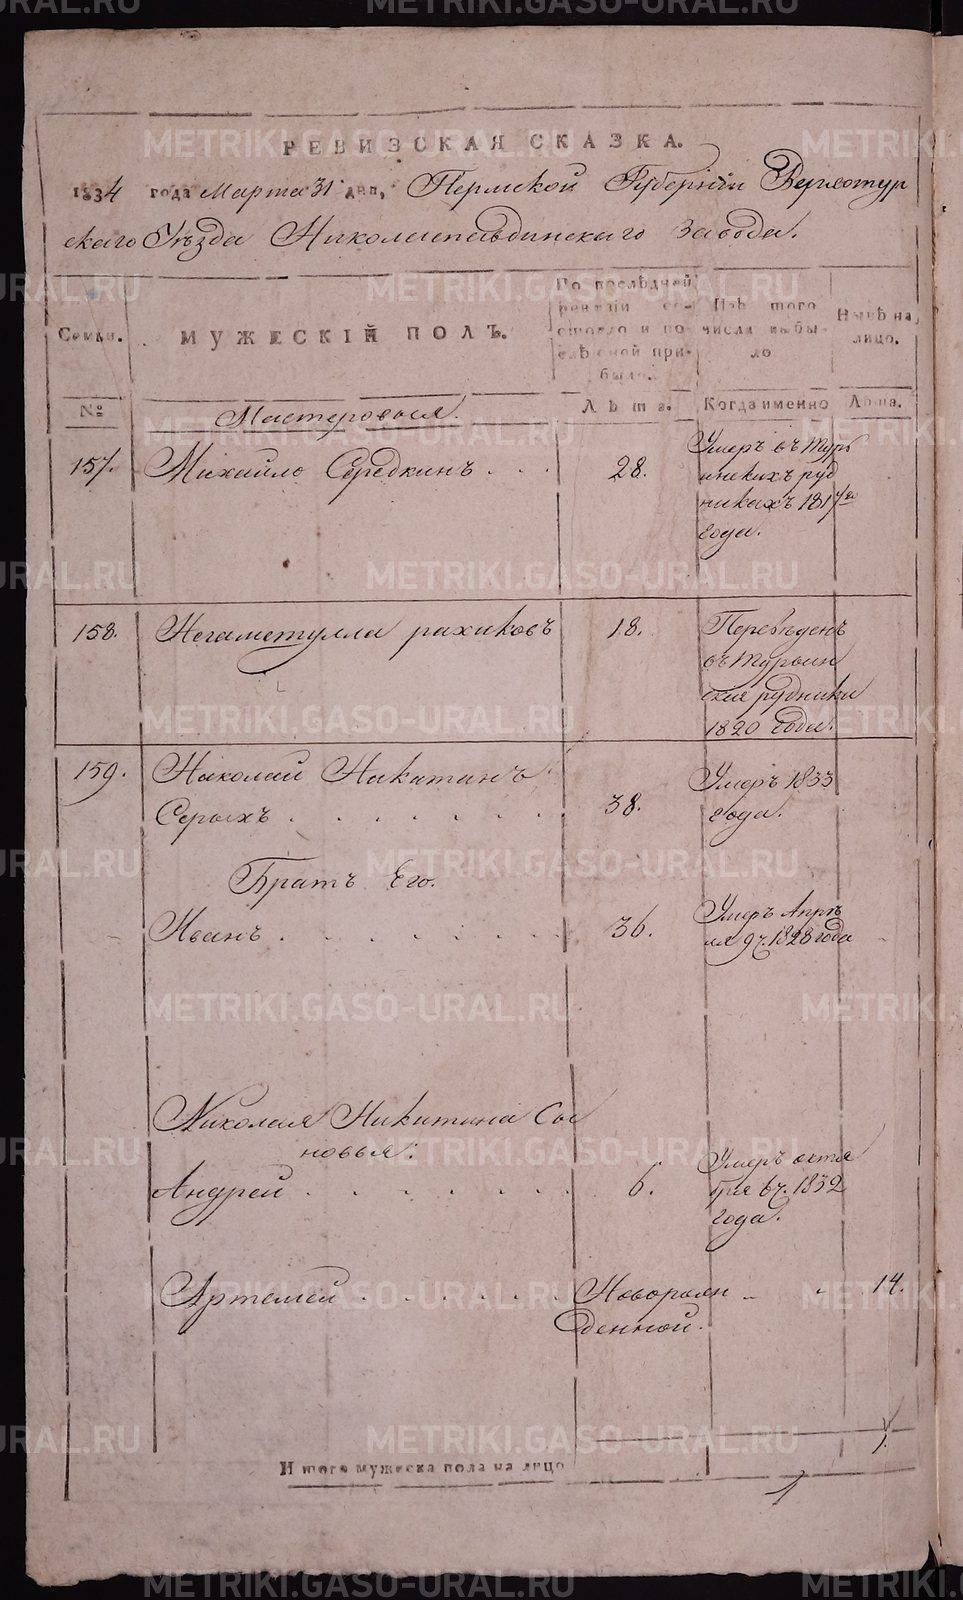 РЕВИЗСКАЯ СКАЗКА.
1834 года Марта 31 дня, Пермской Губернии Верхотур
скаго Уѣзда Николаепавдинскаго Завода.
Семьи.
МУЖЕСКІЙ ПОЛЪ.
По послѣдней
ревизіи со-
стояло и по-
слѣ оной при-
было.
Изъ того
числа выбы-
ло
Нынѣ на
лицо.
№
Мастеровыя.
Лѣта.
Когда именно
Лѣта.
157.
Михайло Середкинъ . . .
28.
Умеръ въ Турь
инскихъ руд
никахъ 1817го
года.
158.
Негаметулла рахиковъ
18.
Переведенъ
въ Турьин
ские рудники
1820 года.
159.
Николай Никитинъ
Серыхъ . . . . . . .
38.
Умеръ 1833
года.
Братъ Его.
Иванъ . . . . . . .
36.
Умеръ Апрѣ
ля 9 ч. 1828 года
Николая Никитина Сы
новья:
Андрей . . . . . . .
6.
Умеръ октя
бря 6 ч. 1832
года.
Артемей . . . . . .
Новорожд
денной.
14.
Итого мужеска пола на лицо
1.
1
METRIKI.GASO-URAL.RU